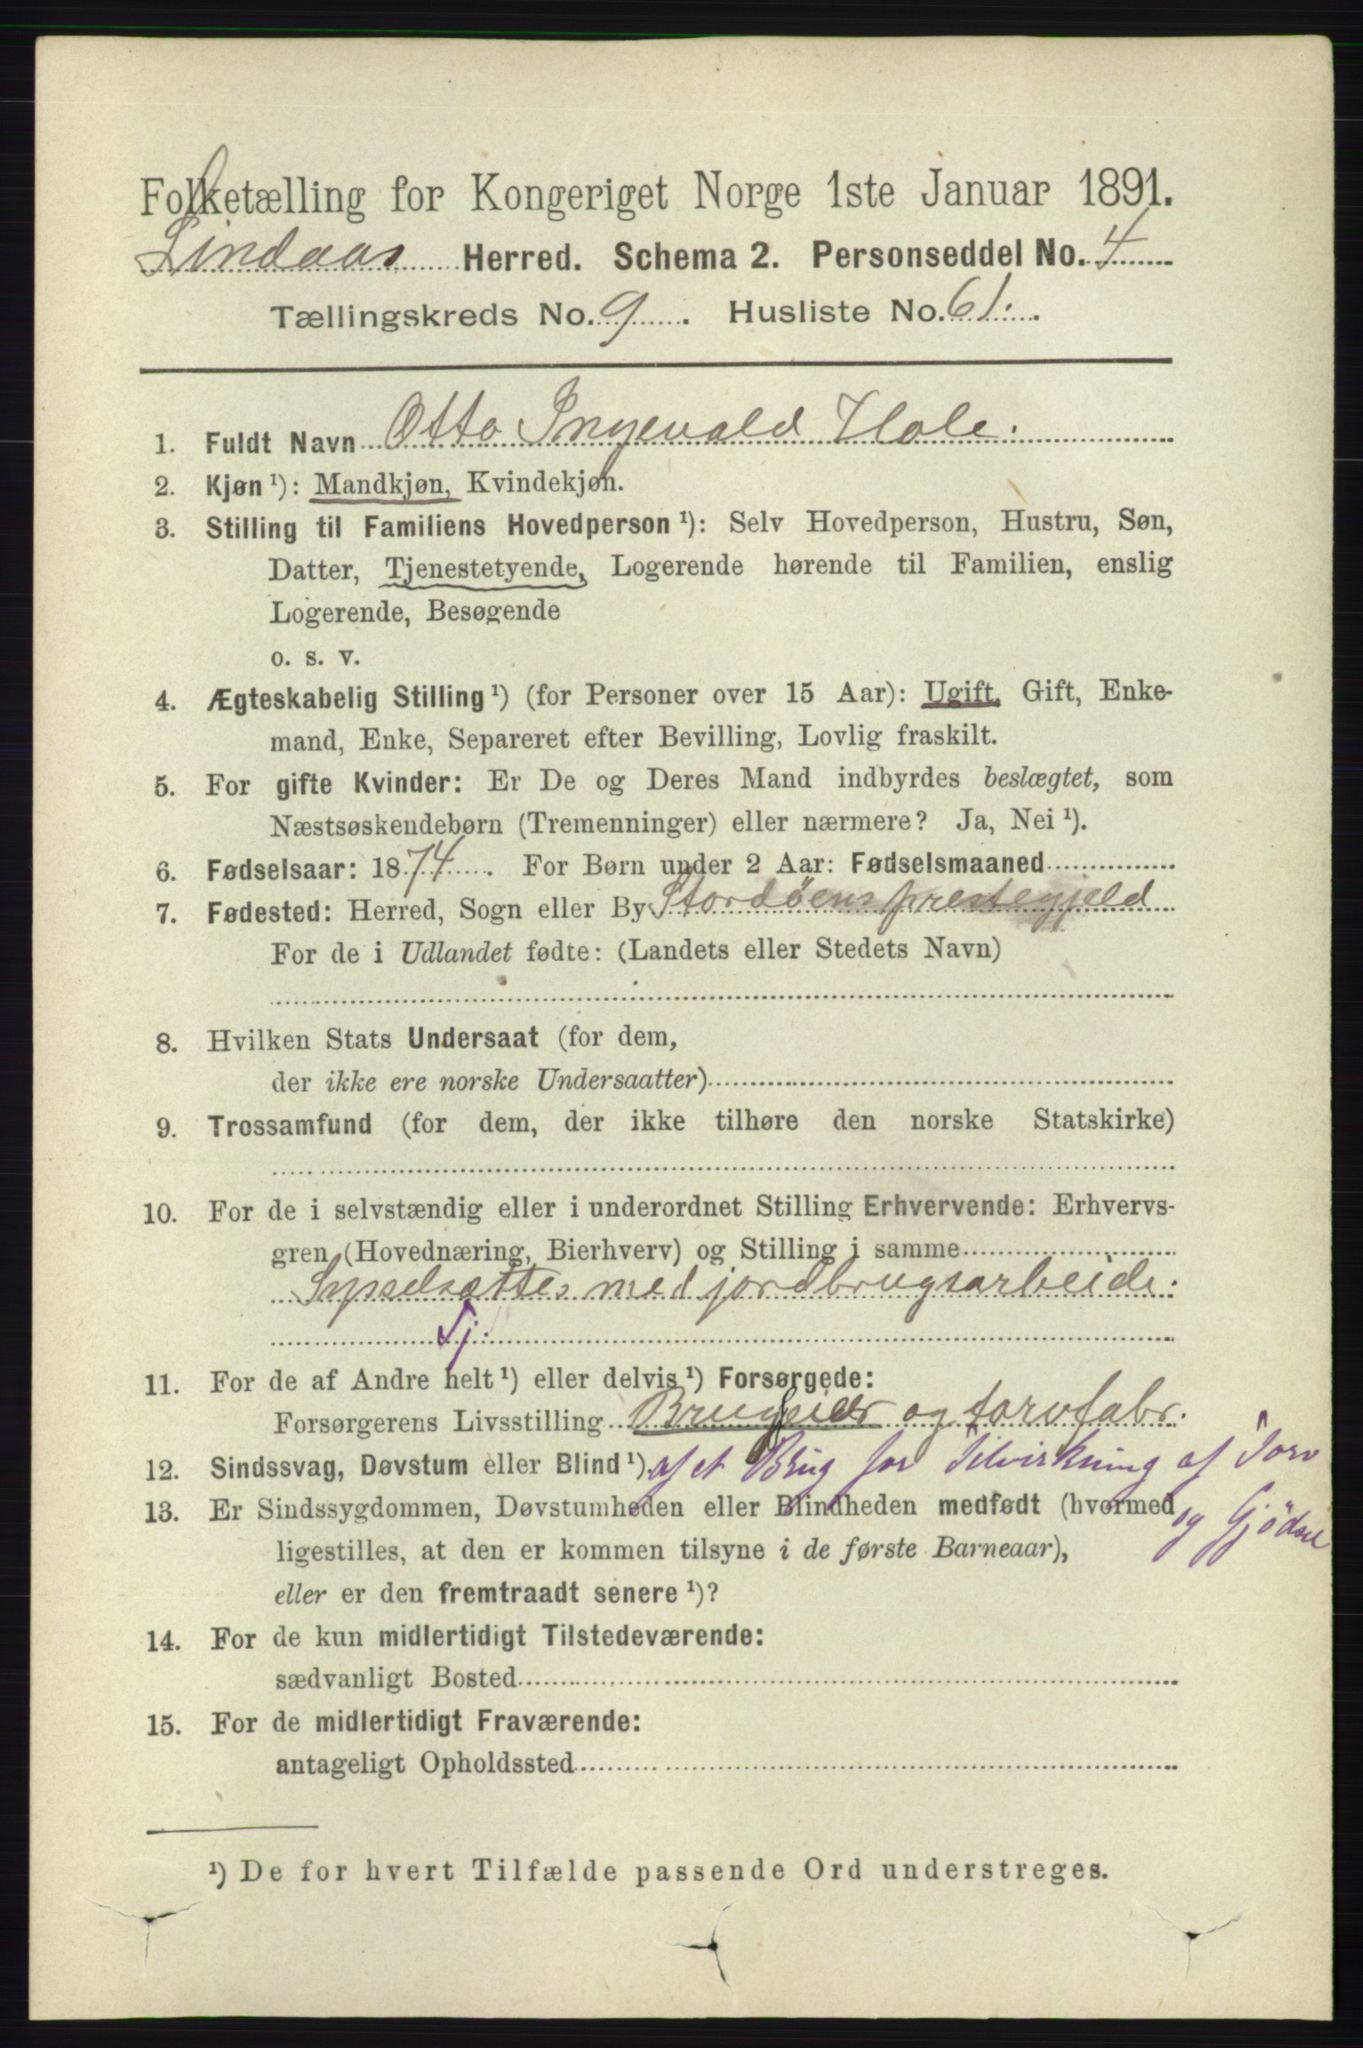 Folketælling for Kongeriget Norge 1ste Januar 1891.
Lindaas Herred. Schema 2. Personseddel No. 4
Tællingskreds No. 9. Husliste No. 61.
1. Fuldt Navn Otto Ingevald Hole.
2. Kjøn ¹): Mandkjøn, Kvindekjøn.
3. Stilling til Familiens Hovedperson ¹): Selv Hovedperson, Hustru, Søn,
Datter, Tjenestetyende, Logerende hørende til Familien, enslig
Logerende, Besøgende
o. s. v.
4. Ægteskabelig Stilling ¹) (for Personer over 15 Aar): Ugift, Gift, Enke-
mand, Enke, Separeret efter Bevilling, Lovlig fraskilt.
5. For gifte Kvinder: Er De og Deres Mand indbyrdes beslægtet, som
Næstsøskendebørn (Tremenninger) eller nærmere? Ja, Nei ¹).
6. Fødselsaar: 1874. For Børn under 2 Aar: Fødselsmaaned
7. Fødested: Herred, Sogn eller By Stordöens prestegjeld
For de i Udlandet fødte: (Landets eller Stedets Navn)
8. Hvilken Stats Undersaat (for dem,
der ikke ere norske Undersaatter)
9. Trossamfund (for dem, der ikke tilhøre den norske Statskirke)
10. For de i selvstændig eller i underordnet Stilling Erhvervende: Erhvervs-
gren (Hovednæring, Bierhverv) og Stilling i samme
Sysselsættes med jordbrugsarbeide.
Tj.
11. For de af Andre helt ¹) eller delvis ¹) Forsørgede:
Forsørgerens Livsstilling Brugseier og torvfabr.
12. Sindssvag, Døvstum eller Blind ¹). af et Brug for Tilvirkning af Torv
13. Er Sindssygdommen, Døvstumheden eller Blindheden medfødt (hvormed og Gjödsel
ligestilles, at den er kommen tilsyne i de første Barneaar),
eller er den fremtraadt senere ¹)?
14. For de kun midlertidigt Tilstedeværende:
sædvanligt Bosted
15. For de midlertidigt Fraværende:
antageligt Opholdssted
¹) De for hvert Tilfælde passende Ord understreges.